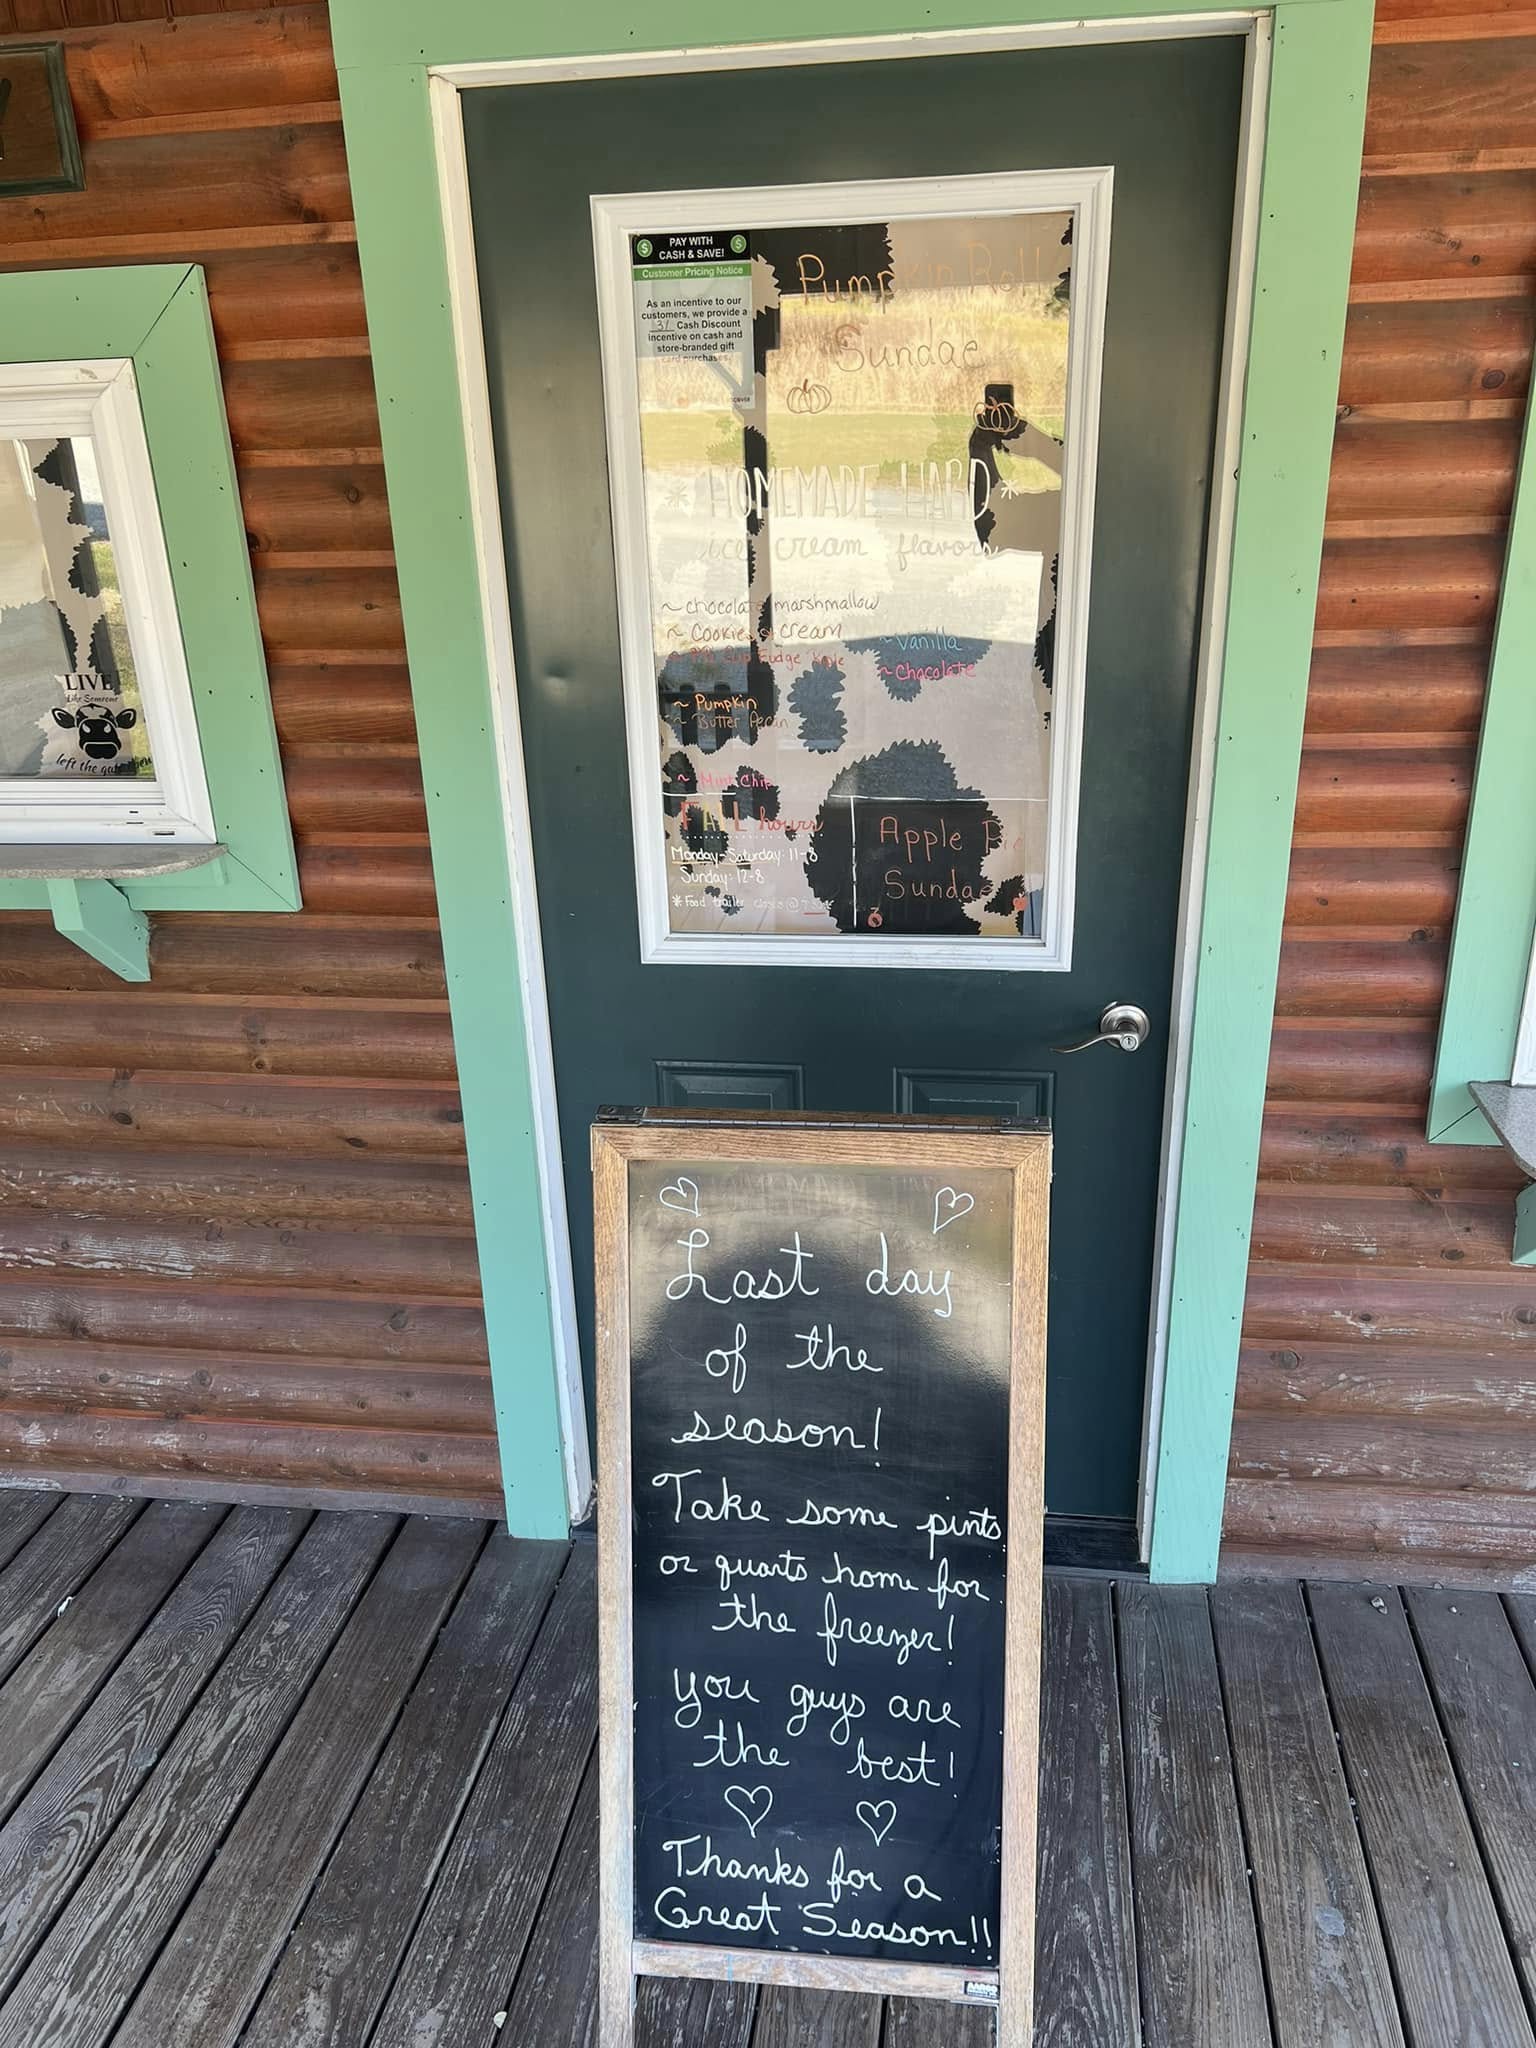 PAY WITH
CASH & SAVE!
Customer Pricing Notice
As an incentive to our
customers, we provide a
3% Cash Discount
incentive on cash and
store-branded gift
card purchases.
Pumpkin Roll
Sundae
* HOMEMADE HARD *
ice cream flavors
~ chocolate marshmallow
~ Cookies & cream
Fudge
~ Vanilla
~ Chocolate
~ Pumpkin
~ Butter Pecan
~ Mint Chip
FALL hours
Monday-Saturday: 11-8
Sunday: 12-8
* Food trailer closes @
Apple Pie
Sundae
LIVE
Like Someone
left the gate open
Last day
of the
season!
Take some pints
or quarts home for
the freezer!
You guys are
the best!
Thanks for a
Great Season!!